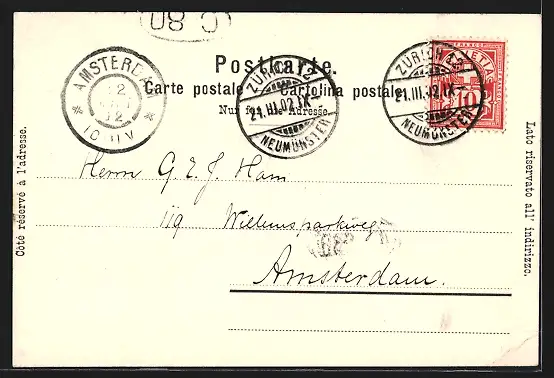 (C 80)
Postkarte.
Carte postale. Cartolina postale.
Nur für die Adresse.
AMSTERDAM
22
12
10-11V
ZÜRICH 12
21.III.02.IX-
NEUMÜNSTER
ZÜRICH 12
21.III.02.IX-
NEUMÜNSTER
FRANCO
HELVETIA
10
Côté réservé à l'adresse.
Lato riservato all' indirizzo.
Herrn G E J Ham
119 Willemsparkweg
Amsterdam.